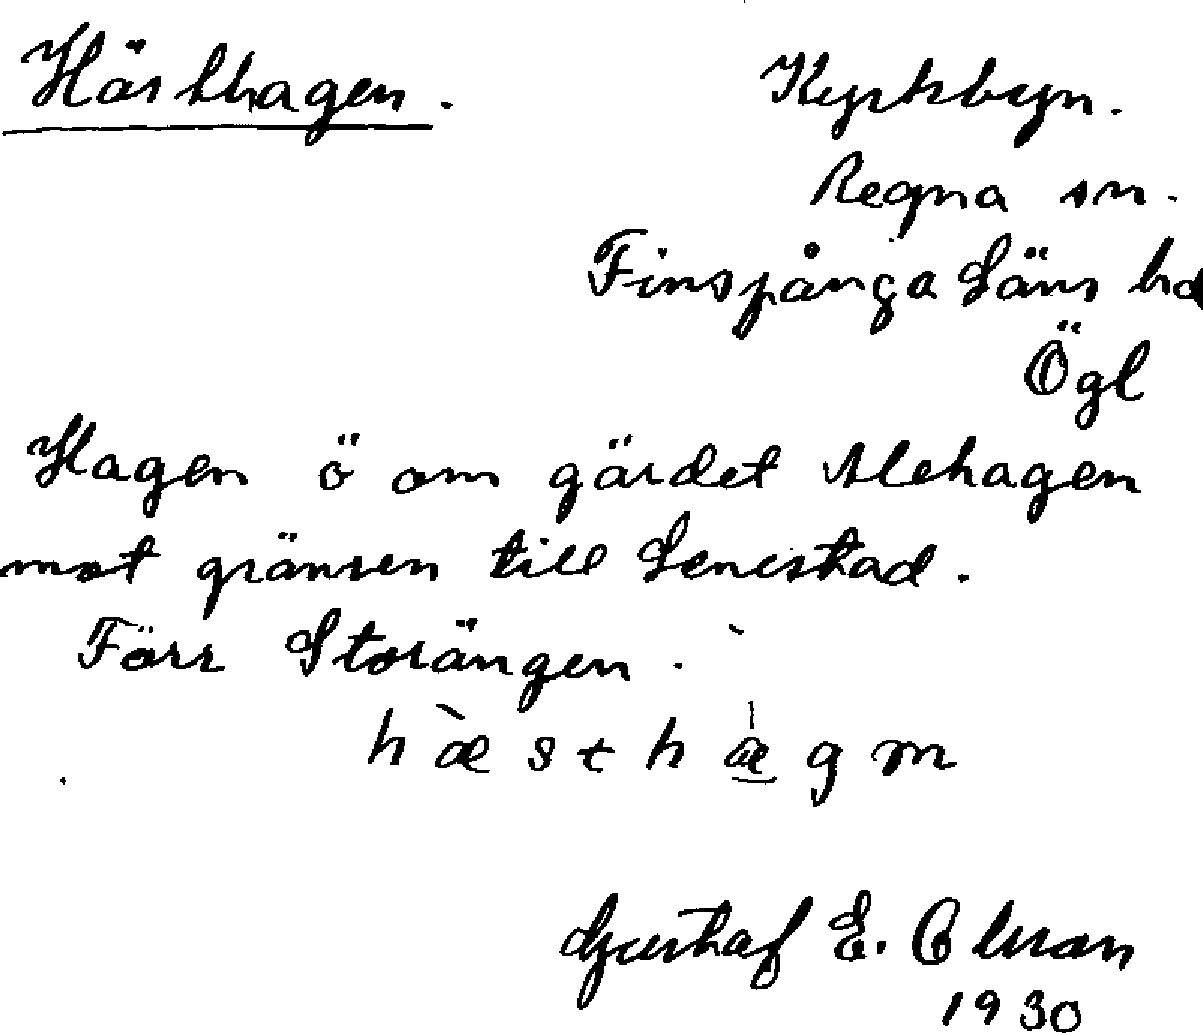 Hästhagen.
Kyrkbyn.
Regna sn.
Finspånga Läns hd
Ögl
Hagen ö om gärdet Alehagen
mot gränsen till Lenestad.
Förr Storängen.
h æ̀ s t h æ̀ g m
Gustaf E. Olsson
1930